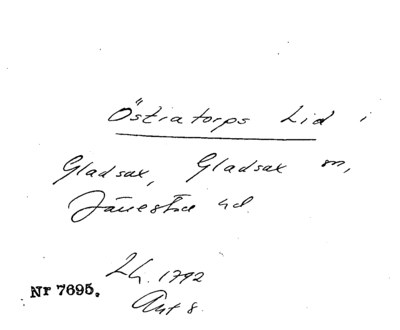 Östratorps Lid i
Gladsax, Gladsax sn,
Järrestra hd.
Lh. 1792
Akt 8.
Nr 7695.